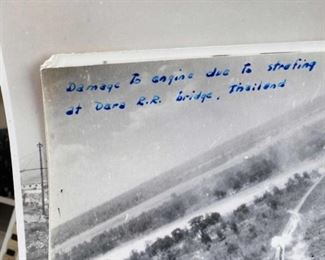 Damage to engine due to strafing
at Dara R.R. bridge, Thailand